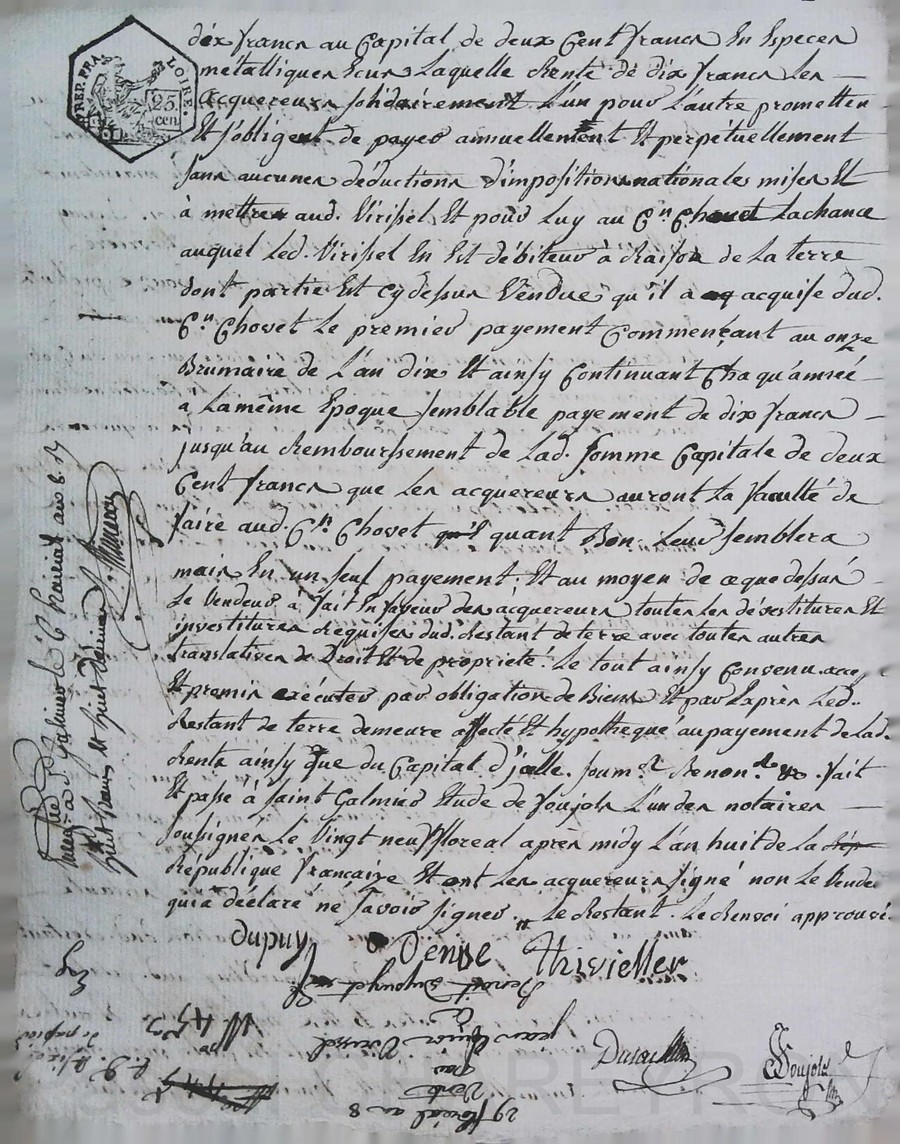 REP. FRA. LOIRE.
25
cen.
dix francs au Capital de deux Cent francs En Especes
métalliques Ecus Laquelle Rente de dix francs Les
acquereurs solidairement L'un pour L'autre promettent
Et s'obligent de payer annuellement Et perpétuellement
sans aucunes déductions d'impositions nationales mises Et
à mettre aud. Virissel Et pour Luy au Cen. Chovet Lachance
auquel Led. Virissel En Est débiteur à Raison de La terre
dont partie Est cy dessus Vendue qu'il a acquise dud.
Cen. Chovet Le premier payement Commençant au onze
Brumaire de L'an dix Et ainsy Continuant Chaqu'année
a Lamême Epoque semblable payement de dix francs
jusqu'au Remboursement de Lad. somme Capitale de deux
Cent francs que Les acquereurs auront La faculté de
faire aud. Cen. Chovet quant Bon Leur semblera
mais En un seul payement. Et au moyen de ceque dessus
Le Vendeur a fait En faveur des acquereurs toutes Les dévestitures Et
investitures Requises dud. Restant de terre avec toutes autres
translatives de Droit Et de proprieté. Le tout ainsy Convenu
Et promis exécuter par obligation de Biens Et par Exprès Led.
Restant de terre demeure affecté Et hypothequé au payement de Lad.
Rente ainsy que du Capital d'jcelle. soum.on Renon.on &c. fait
Et passé à saint Galmier Etude de Soujols L'un des notaires
soussignés Le Vingt neuf floreal après midy L'an huit de La Rép
République française Et ont Les acquereurs signé non Le Vendeur
qui a déclaré ne savoir signer. Le Restant. Le Renvoi approuvé.
Dupuy Denise Thivieller
Soujols
29 floreal an 8
Vente
par
Jean Virissel
a
Benoit